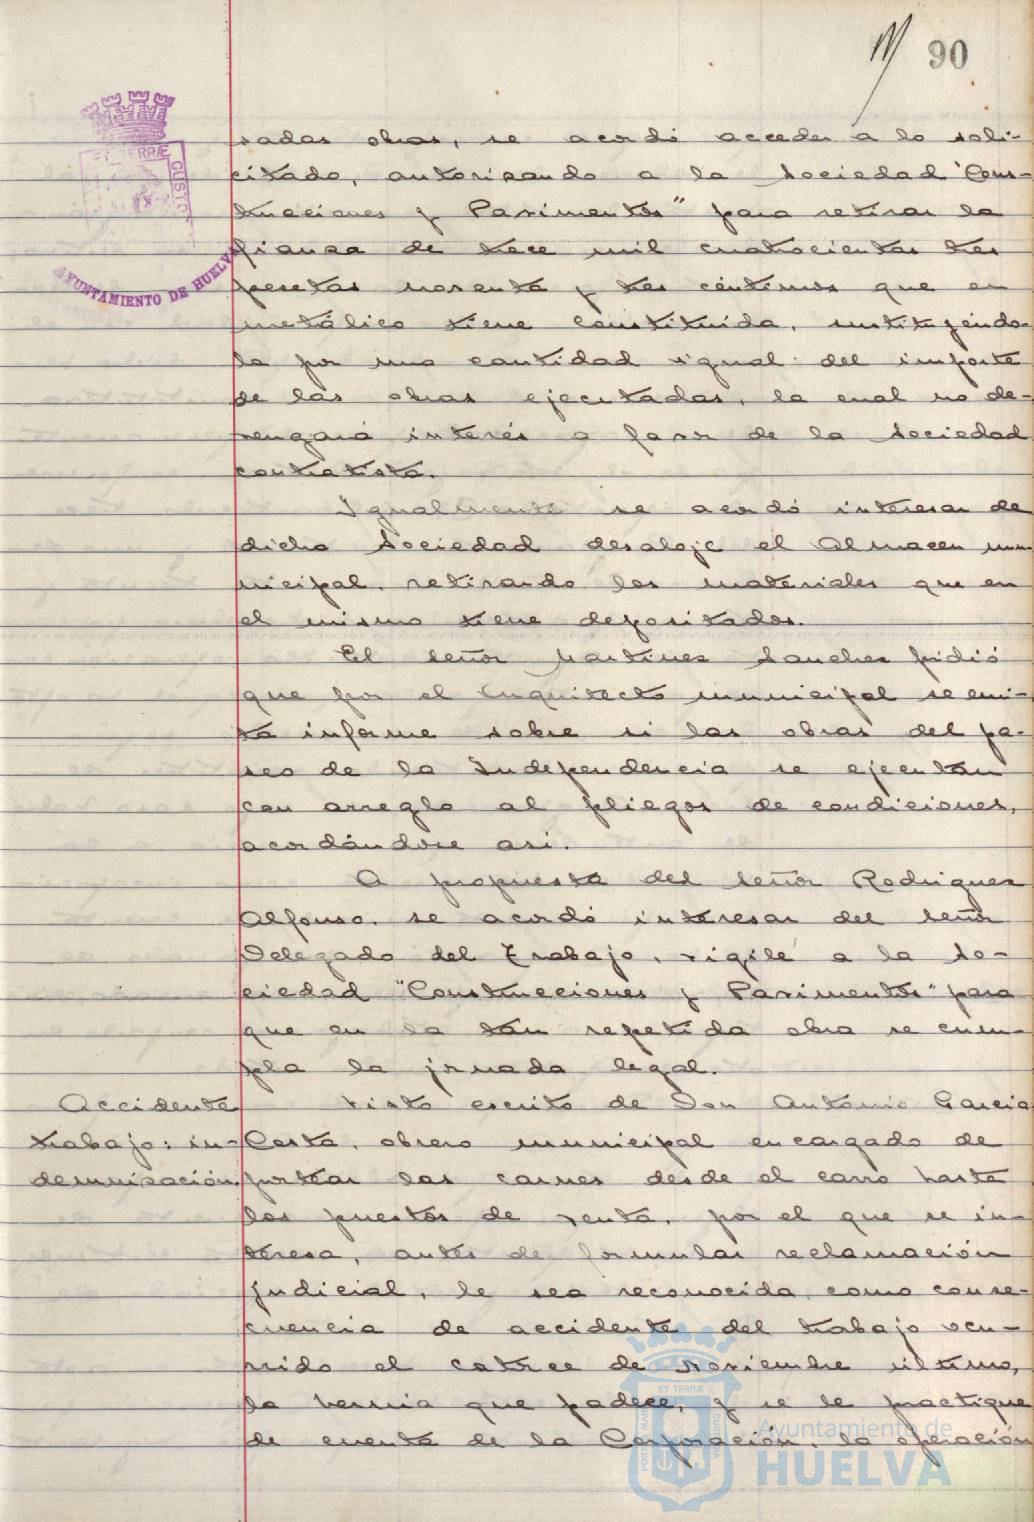 90
sadas obras, se acordó acceder a lo soli-
citado, autorizando a la Sociedad "Cons-
trucciones y Pavimentos" para retirar la
fianza de trece mil cuatrocientas tres
pesetas noventa y tres céntimos que en
metálico tiene constituida, sustituyéndo-
la por una cantidad igual del importe
de las obras ejecutadas, la cual no de-
vengará interés a favor de la Sociedad
contratista.
Igualmente se acordó interesar de
dicha Sociedad desaloje el Almacen mu-
nicipal, retirando los materiales que en
el mismo tiene depositados.
El señor Martinez Sanchez pidió
que por el Arquitecto municipal se emi-
ta informe sobre si las obras del pa-
seo de la Independencia se ejecutan
con arreglo al pliegos de condiciones,
acordándose asi.
A propuesta del señor Rodriguez
Alfonso, se acordó interesar del señor
Delegado del Trabajo, vigile a la So-
ciedad "Construcciones y Pavimentos" para
que en la tan repetida obra se cum-
pla la jornada legal.
Accidente
trabajo: in-
demnización.
Visto escrito de Don Antonio Garcia
Costa, obrero municipal encargado de
portear las carnes desde el carro hasta
los puestos de venta, por el que se in-
teresa, antes de formular reclamación
judicial, le sea reconocida como conse-
cuencia de accidente del trabajo ocu-
rrido el catorce de Noviembre último,
la hernia que padece, y se le practique
de cuenta de la Corporación, la operación
ET TERRÆ
CUSTO
AYUNTAMIENTO DE HUELVA
Ayuntamiento de
HUELVA